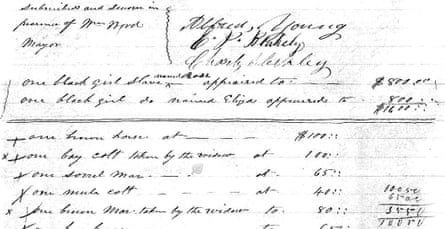 Subscribed and sworn in
presence of Wm Byrd
Mayor
Alfred, Young
C. P. Blakely
Charles
one black girl Slave named Rose appraised to $800.00
one black girl do named Eliza appraised to 800::
$1600::
one brown horse at $100::
x one bay colt taken by the widow at 100::
one sorrel mar at 65::
one mule colt at 40::
x one brown mar taken by the widow to 80::